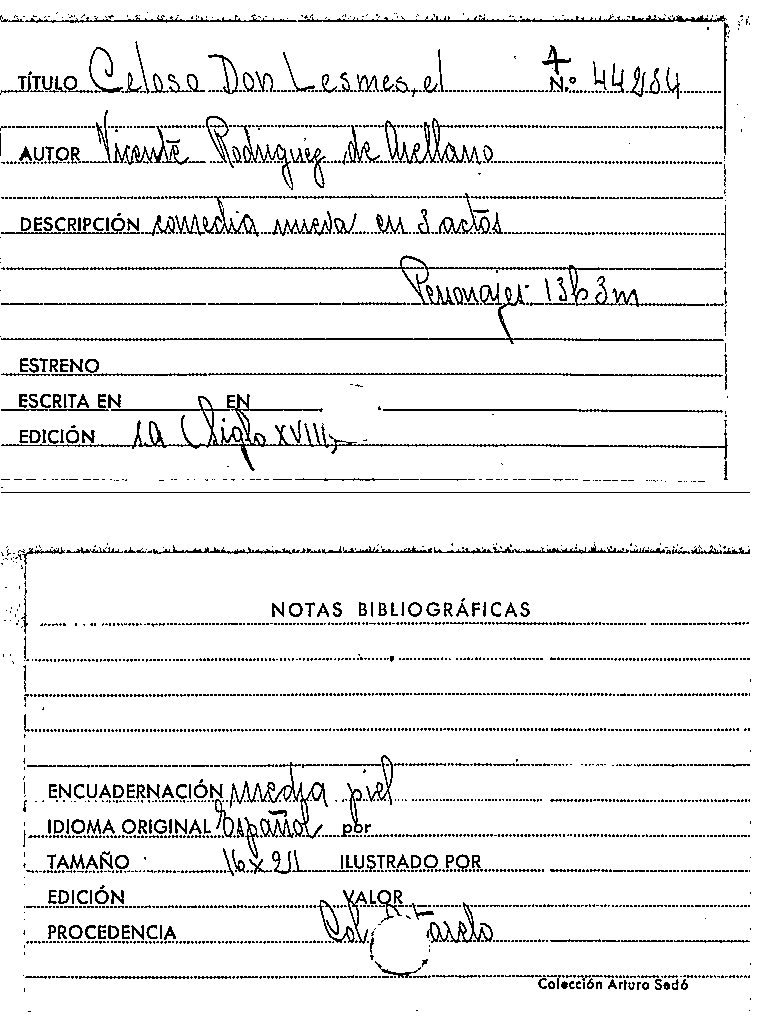 TÍTULO Celoso Don Lesmes, el Nº 44284
AUTOR Vicente Rodriguez de Arellano
DESCRIPCIÓN comedia nueva en 3 actos
Personajes 13h 3m
ESTRENO
ESCRITA EN EN
EDICIÓN Siglo XVIII
NOTAS BIBLIOGRÁFICAS
ENCUADERNACIÓN media piel
IDIOMA ORIGINAL Español por
TAMAÑO 16 x 21 ILUSTRADO POR
EDICIÓN VALOR
PROCEDENCIA Col.
Colección Arturo Sedó